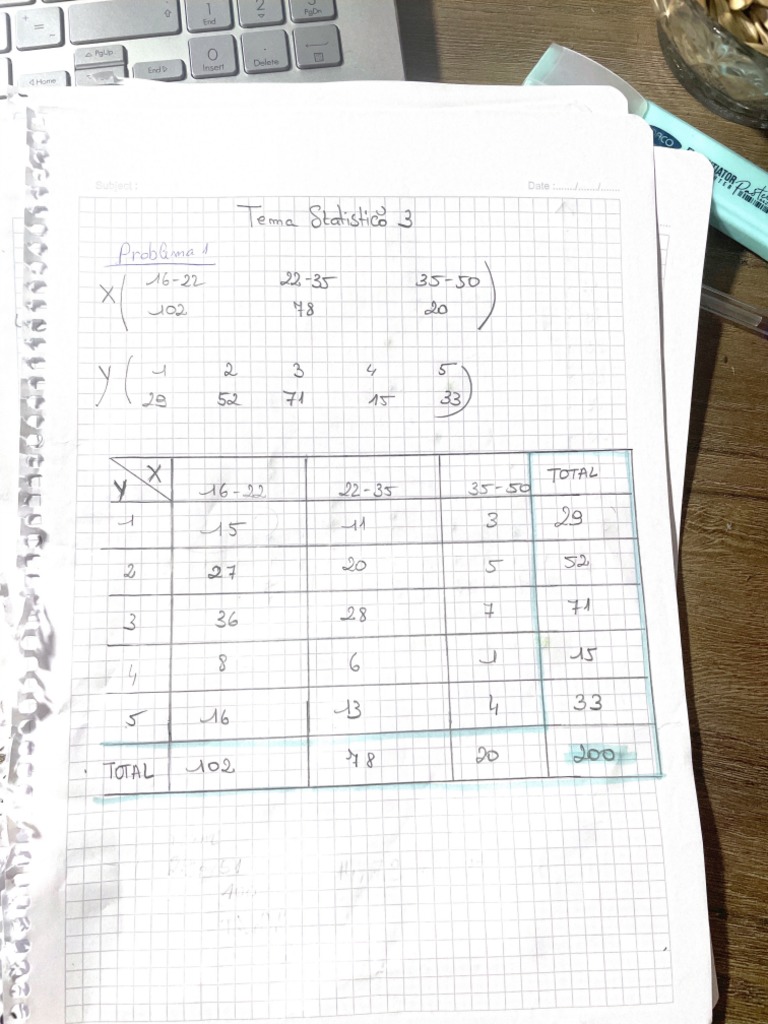 + =
1
End
2
3
PgDn
PgUp
0
Insert
.
Delete
Home
End
Subject :
Date :
Tema Statistică 3
Problema 1
X ( 16-22 22-35 35-50 )
102 78 20
Y ( 1 2 3 4 5 )
29 52 71 15 33
Y X 16-22 22-35 35-50 TOTAL
1 15 11 3 29
2 27 20 5 52
3 36 28 7 71
4 8 6 1 15
5 16 13 4 33
TOTAL 102 78 20 200